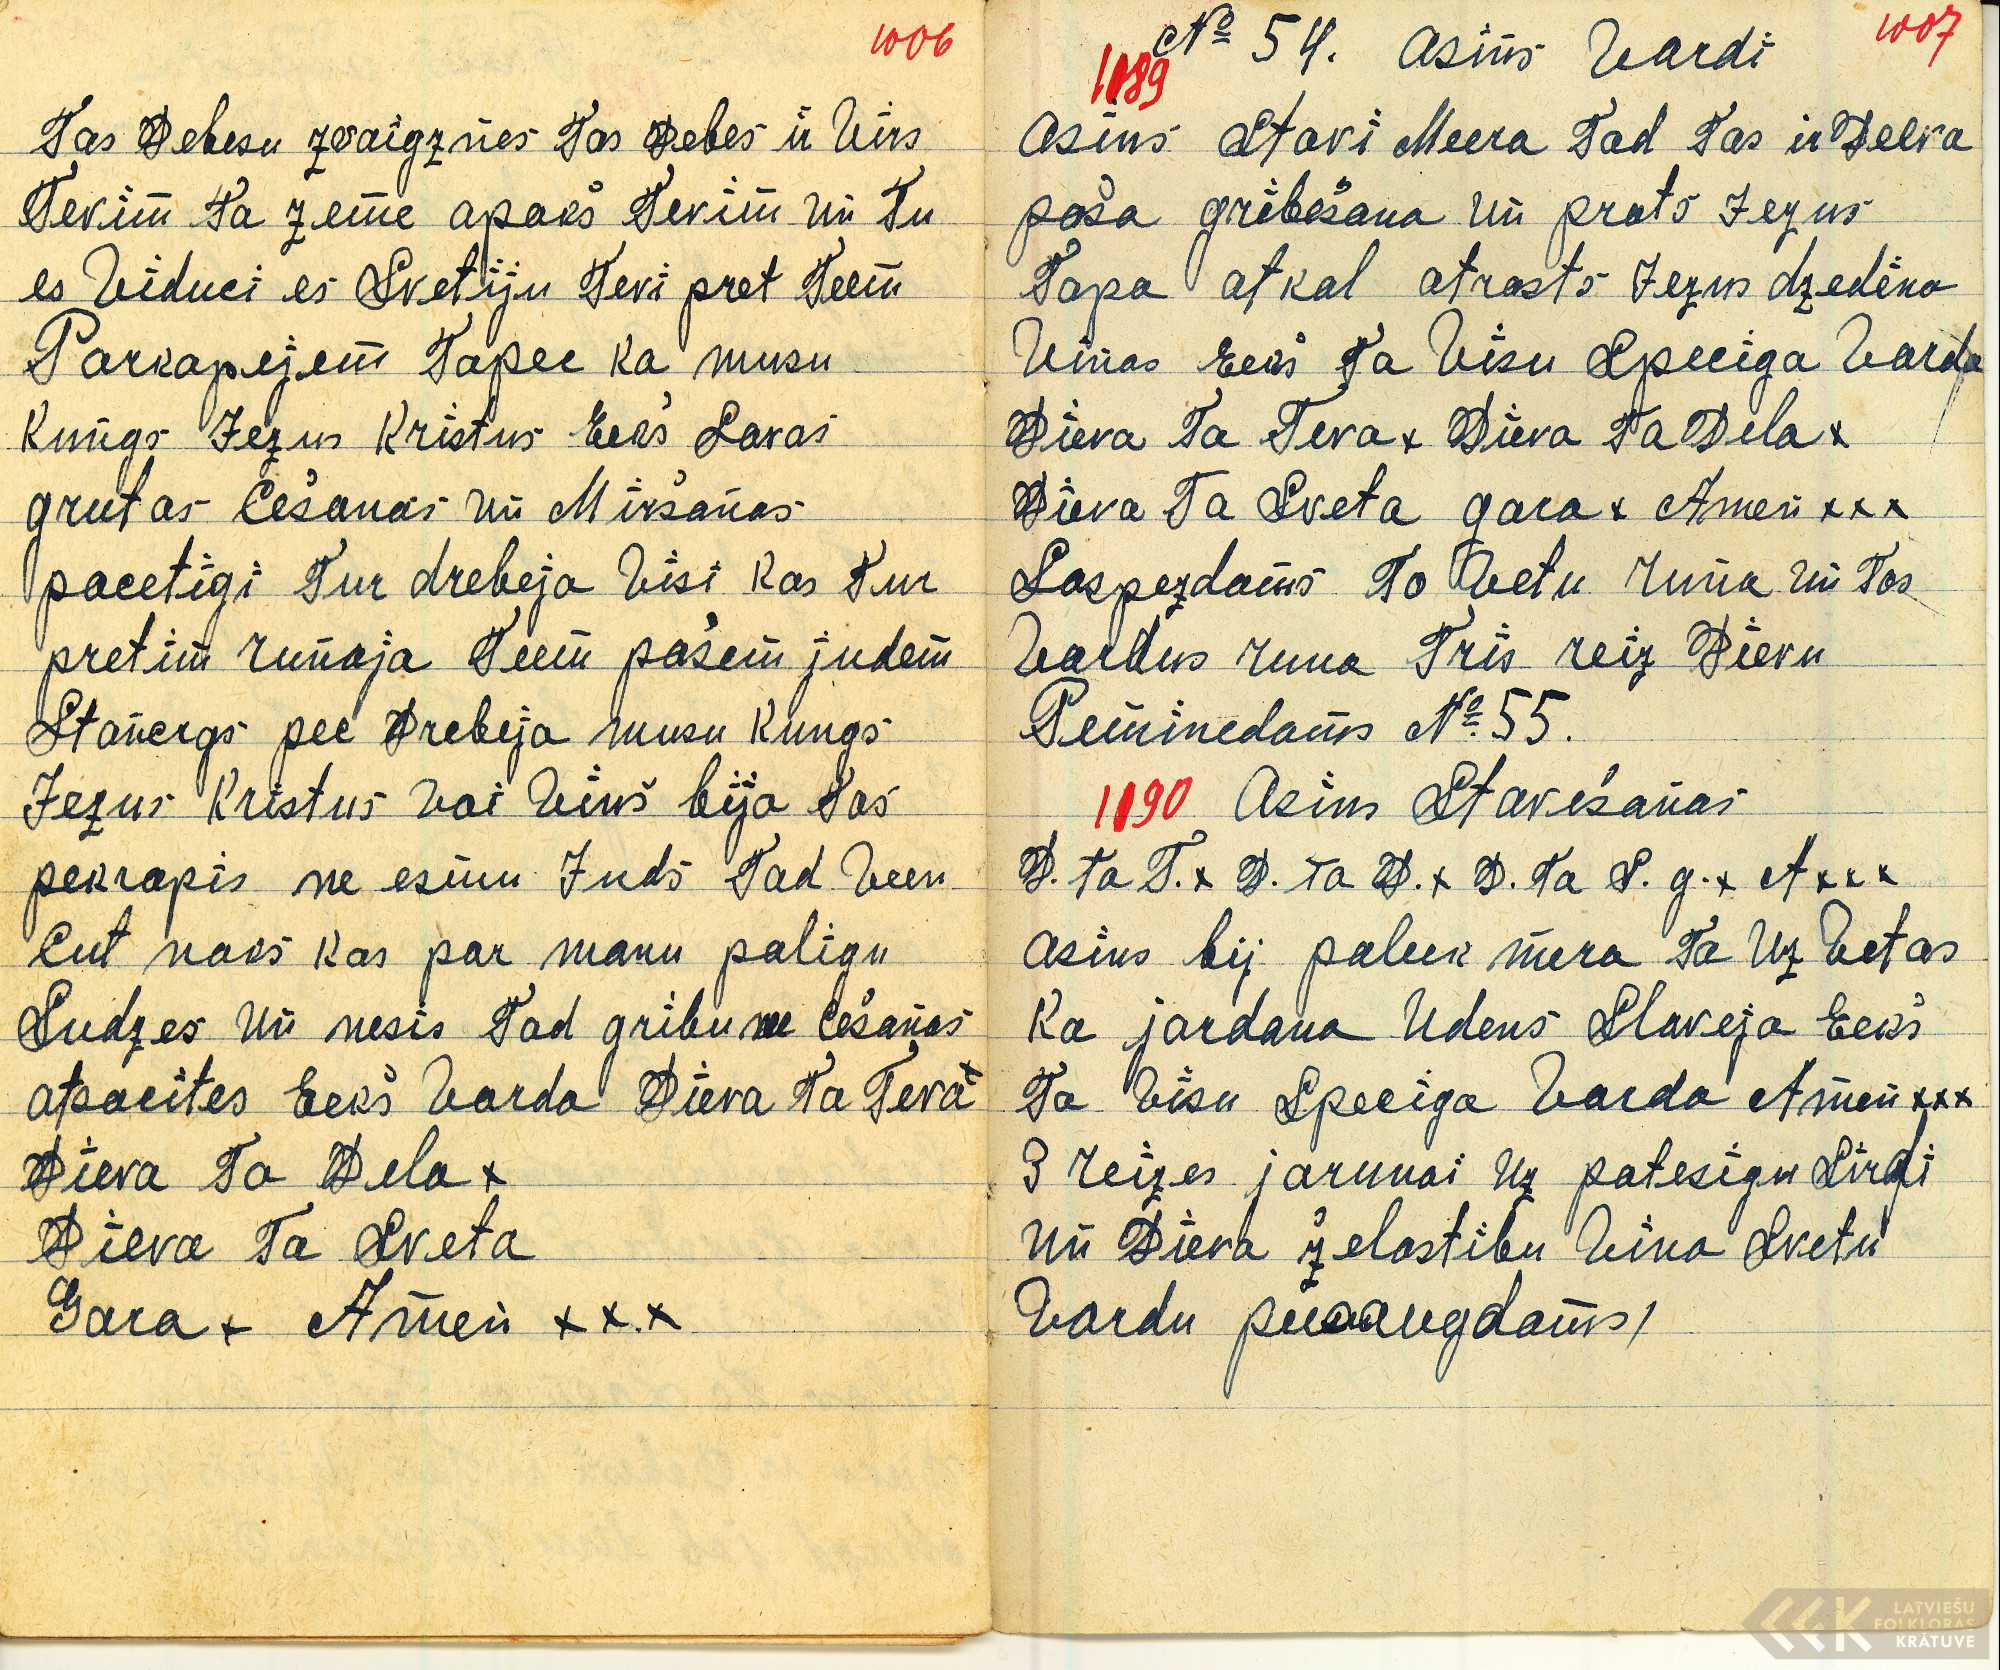 1006
Tas Debesu zvaigznes Tas Debes ir Virs
Tevim Ta zeme apakš Tevim un Tu
es Viduci es Svetiju Tevi pret Teem
Parkapejem Tapec ka musu
Kungs Jezus Kristus Eekš Savas
grutas Cešanas un Miršanas
pacetigi Tur drebeja Visi kas Tur
pretim runaja Teem pašem judem
pee Drebeja musu Kungs
Jezus Kristus Vai Vinš bija Tas
pekrapis ne esmu Juds Tad Veen
Cut naks kas par manu paligu
Ludzes un nesis Tad gribu ne Cešanas
atpacites Eekš Varda Dieva Ta Teva x
Dieva Ta Dela x
Dieva Ta Sveta
Gara x Amen x x x
1007
№ 54. Asins Vardi
1189
Asins Stavi Meera Tad Tas ir Deeva
paša gribešana un prats Jezus
Tapa atkal atrasts Jezus dzedina
Vinas Eekš Ta Visu Speciga Varda
Dieva Ta Teva x Dieva Ta Dela x
Dieva Ta Sveta gara x Amen x x x
Saspezdams To Vetu runa un Tos
Vardus runa Tris reiz Dievu
Peminedams № 55.
1190 Asins Stavešanas
D. Ta T. x D. Ta D. x D. Ta S. g. x A x x x
Asins bij paleek mera Ta Uz Vetas
Ka jardana Udens Staveja Eekš
Ta Visu Speciga Varda Amen x x x
3 reizes jarunai Uz patesigu Sirdi
un Dieva želastibu Vina Svetu
Vardu
LATVIEŠU
FOLKLORAS
KRĀTUVE